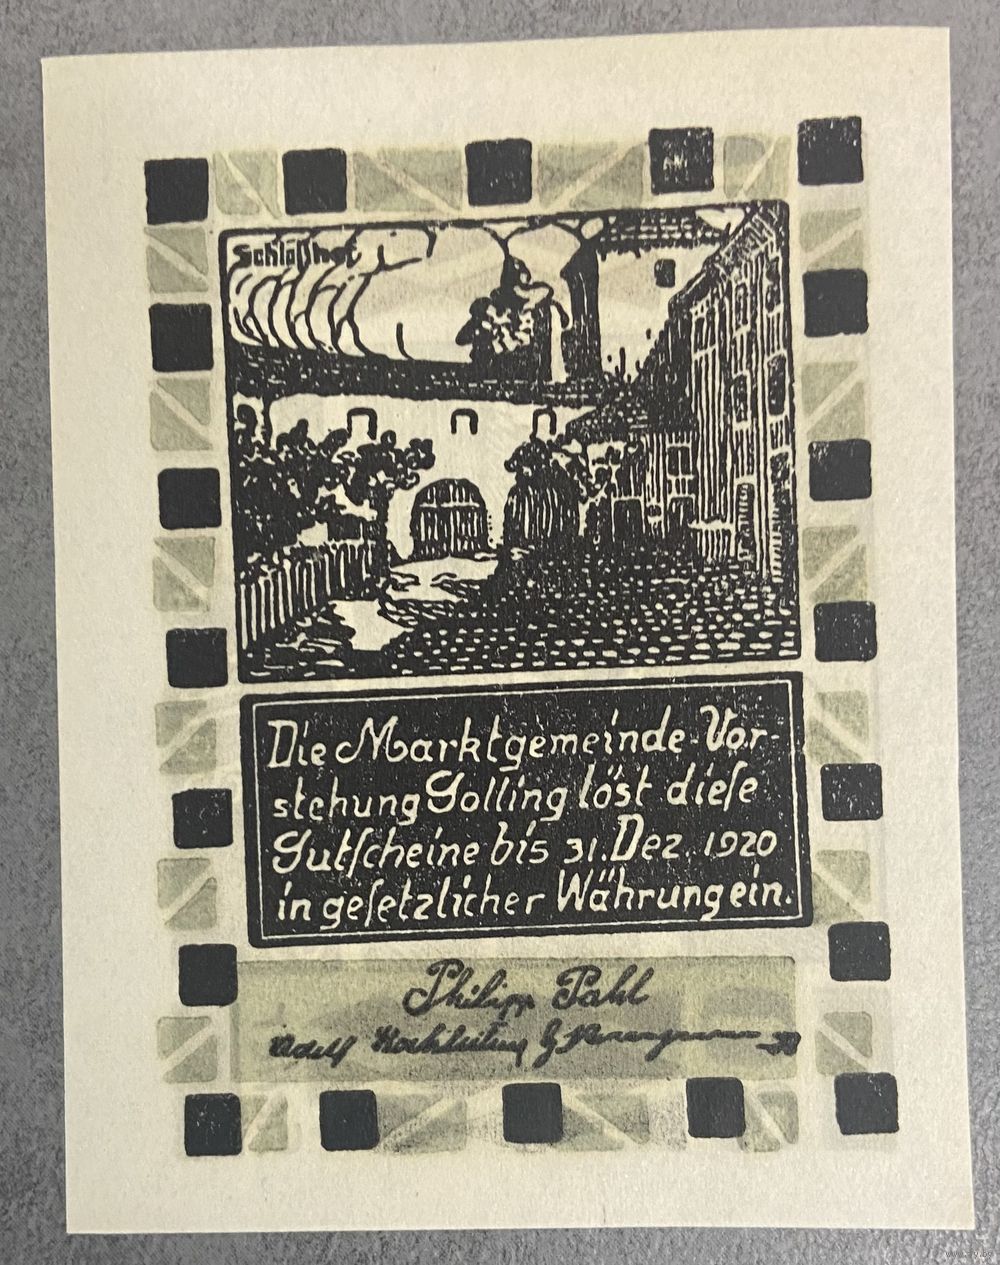 Schloßhof
Die Marktgemeinde-Vor-
stehung Golling löst dieſe
Gutſcheine bis 31. Dez. 1920
in geſetzlicher Währung ein.
Philipp Pahl
Adolf